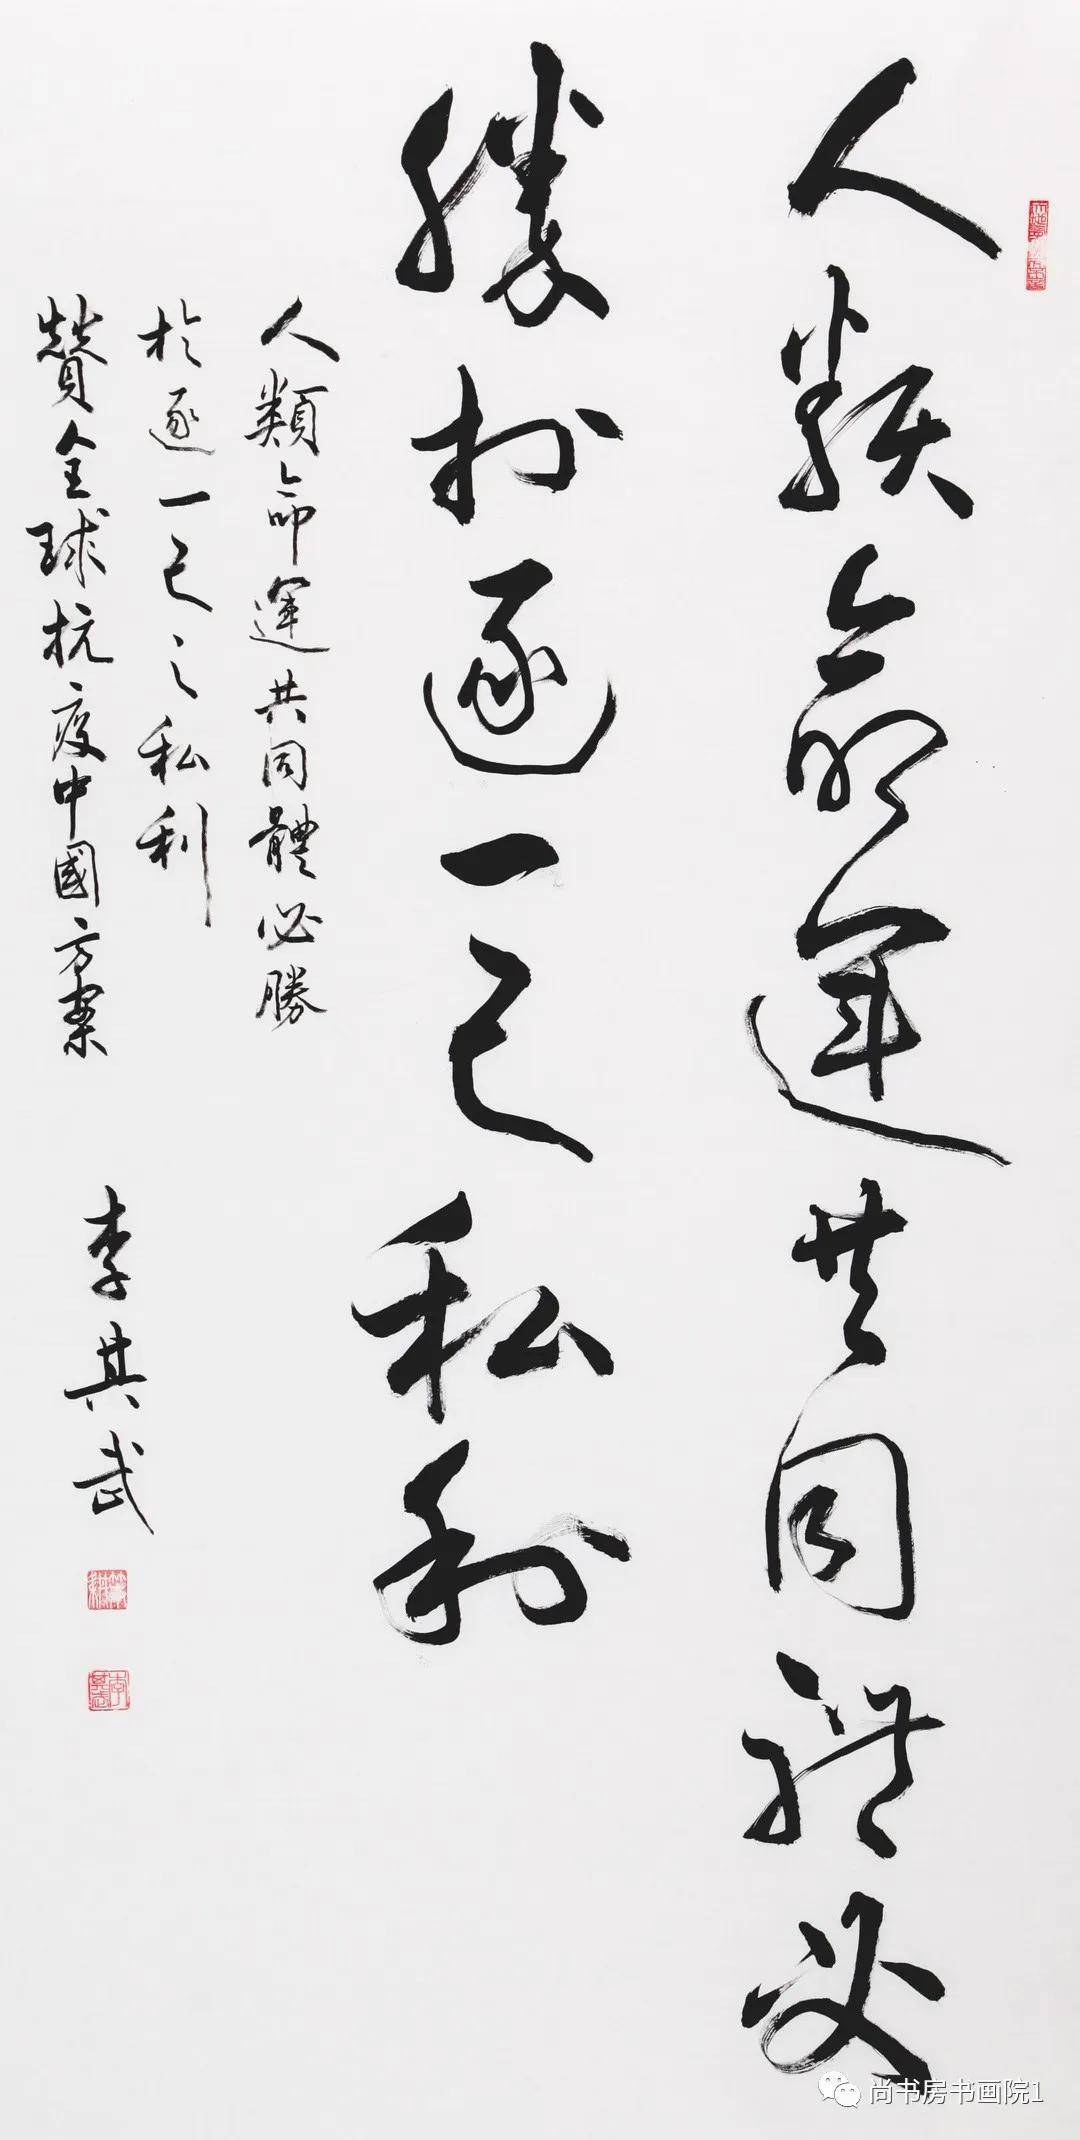 人類命運共同體必
勝於逐一己私利
人類命運共同體必勝
於逐一己之私利
贊全球抗疫中國方案
李其武
李其武
尚书房书画院1